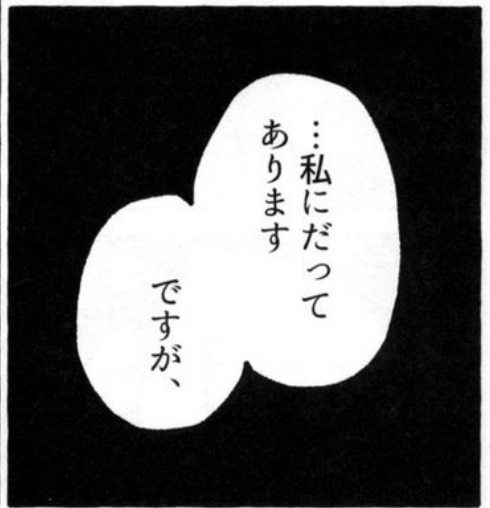 …私にだって
あります
ですが、